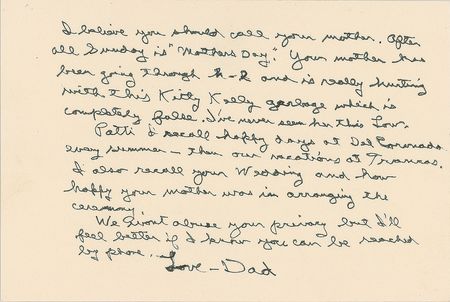 I believe you should call your mother. After
all Sunday is "Mothers Day." Your mother has
been going through h-l and is really hurting
with this Kitty Kelly garbage which is
completely false. I've never seen her this low.
Patti I recall happy days at Del Coronado
every summer — then our vacations at Trancas.
I also recall your Wedding and how
happy your mother was in arranging the
ceremony.
We won't abuse your privacy but I'll
feel better if I know you can be reached
by phone.
Love — Dad